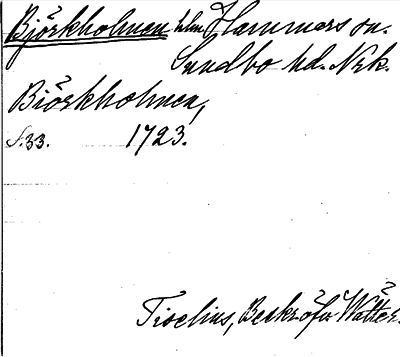 Björkholmen hlm Hammars sn.
Sundbo hd. Nrk.
Biörkholmen,
S. 33. 1723.
Tiselius, Beskr. öfv. Wätter.